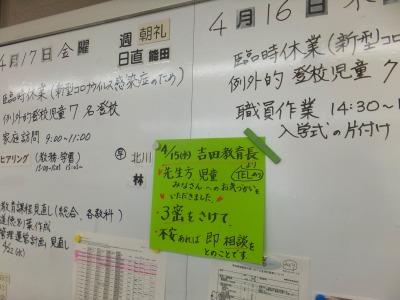 4月17日金曜
週 朝礼
日直
臨時休業(新型コロナウイルス感染症のため)
例外的登校児童7名登校
家庭訪問 9:00〜11:00
ヒアリング
北川
林
教育課程見直し(総合、各教科)
管理運営計画 見直し
4月16日
臨時休業(新型コ
例外的 登校児童 7
職員作業 14:30〜1
入学式の片付け
4/15(水) 吉田教育長
より
先生方 児童 TELあり
みなさんへのお気づかいを
いただきました。
・3密をさけて、
・不安あれば 即 相談を
とのことです。